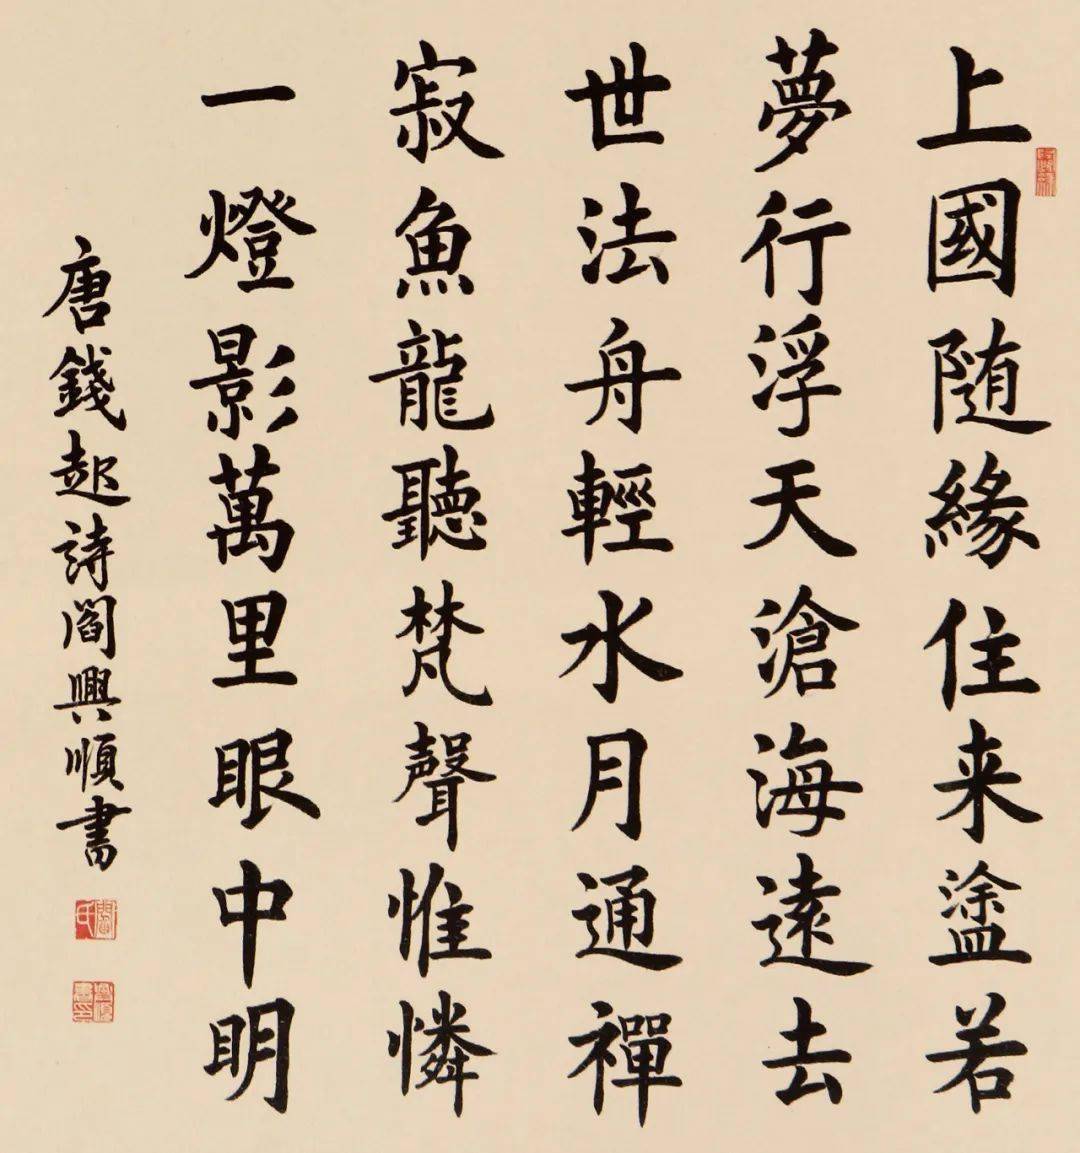 上國随緣住来塗若
夢行浮天滄海遠去
世法舟輕水月通禪
寂魚龍聽梵聲惟憐
一燈影萬里眼中明
唐錢起詩閻興順書
閻氏
興順書印